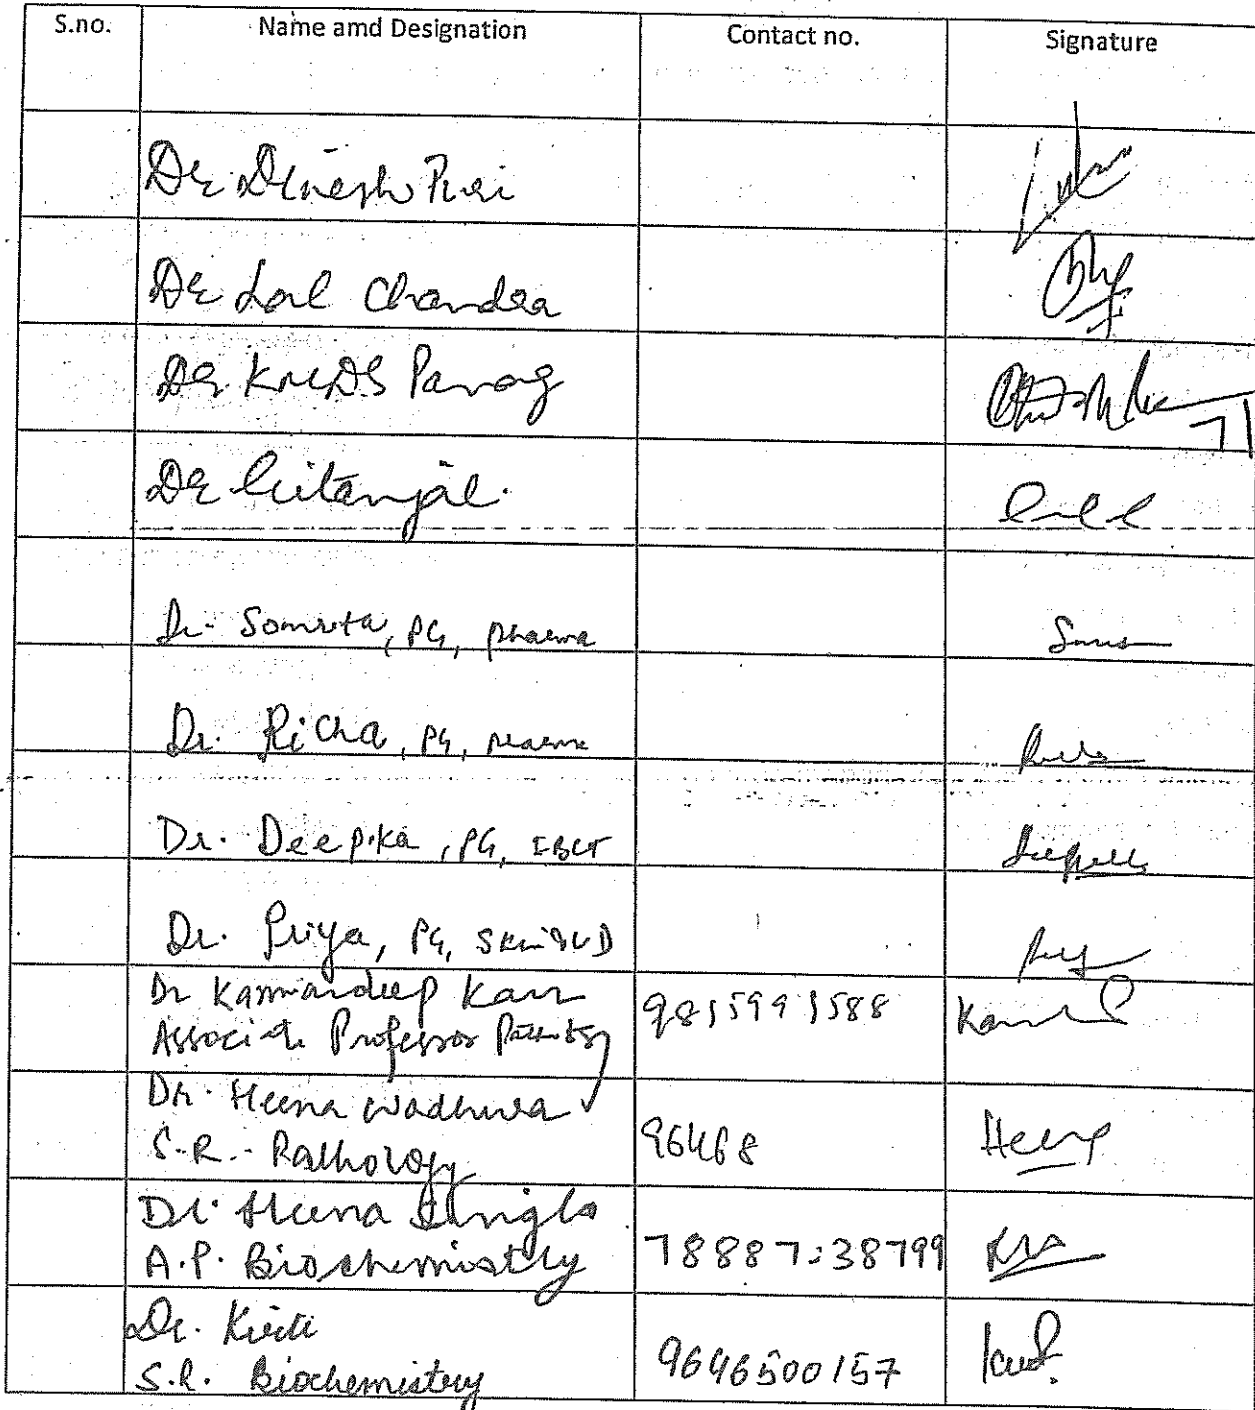 S.no. Name amd Designation Contact no. Signature
Dr Dinesh Puri
Dr Lal Chandra
Dr Parag
Dr Gitanjali
Dr. Somrita, PG, pharma
Dr. Richa, PG, pharma
Dr. Deepika, PG, IBCT
Dr. Priya, PG, Skin & VD
Dr Kamnardeep Kaur 9815991588
Associate Professor Pathology
Dr. Heena Wadhwa
S.R. Pathology 96468 Heena
Dr. Heena Singla
A.P. Biochemistry 78887-38799
Dr. Kirti
S.R. Biochemistry 9646500157